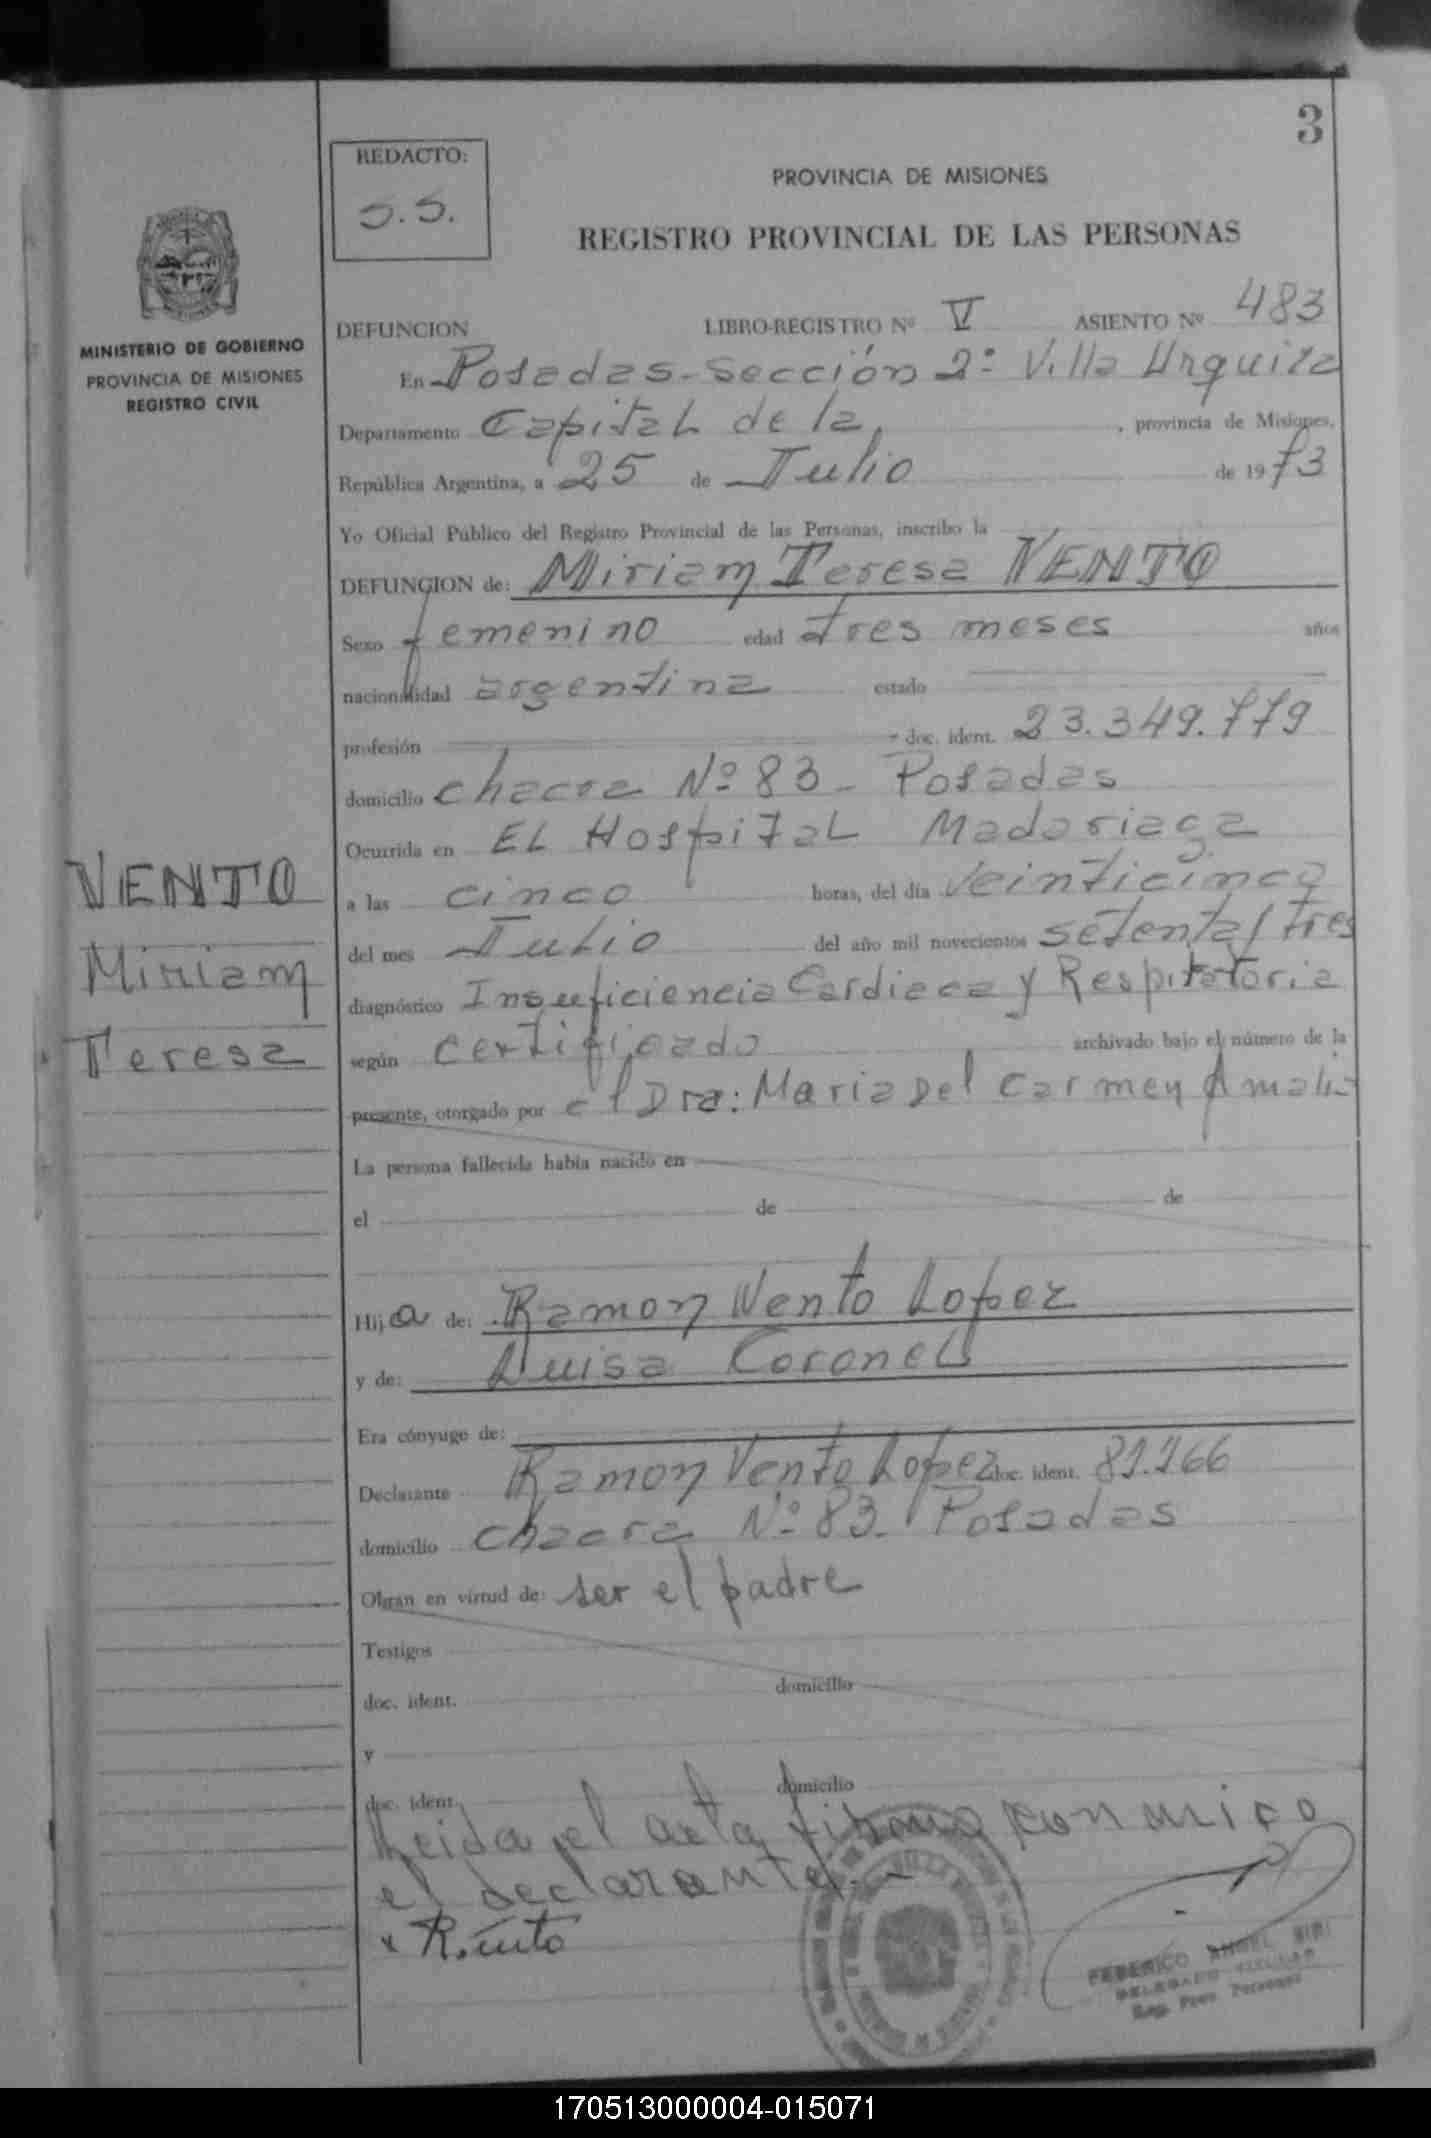 3
REDACTO:
S.S.
PROVINCIA DE MISIONES
REGISTRO PROVINCIAL DE LAS PERSONAS
MINISTERIO DE GOBIERNO
PROVINCIA DE MISIONES
REGISTRO CIVIL
DEFUNCION LIBRO-REGISTRO Nº V ASIENTO Nº 483
En Posadas-Sección 2º Villa Urquiza
Departamento Capital de la, provincia de Misiones,
República Argentina, a 25 de Julio de 1973
Yo Oficial Público del Registro Provincial de las Personas, inscribo la
DEFUNCION de: Miriam Teresa VENTO
Sexo femenino edad tres meses años
nacionalidad argentina estado
profesión doc. ident. 23.349.779
domicilio chacra Nº 83 - Posadas
Ocurrida en EL Hospital Madariaga
a las cinco horas, del día veinticinco
del mes Julio del año mil novecientos setenta/tres
diagnóstico Insuficiencia Cardiaca y Respitatoria
según certificado archivado bajo el número de la
presente, otorgado por el Dra: Maria Del Carmen Amalia
La persona fallecida había nacido en
el de de
Hija de: Ramon Vento Lopez
y de: Luisa Coronel
Era cónyuge de:
Declarante Ramon Vento Lopez doc. ident. 81.166
domicilio chacra Nº 83. Posadas
Obran en virtud de: ser el padre
Testigos
doc. ident. domicilio
y
doc. ident. domicilio
Leida el acta firma conmigo
el declarante.-
x R. Vento
FEDERICO ANGEL
DELEGADO TITULAR
Reg. Prov. Personas
VENTO
Miriam
Teresa
170513000004-015071